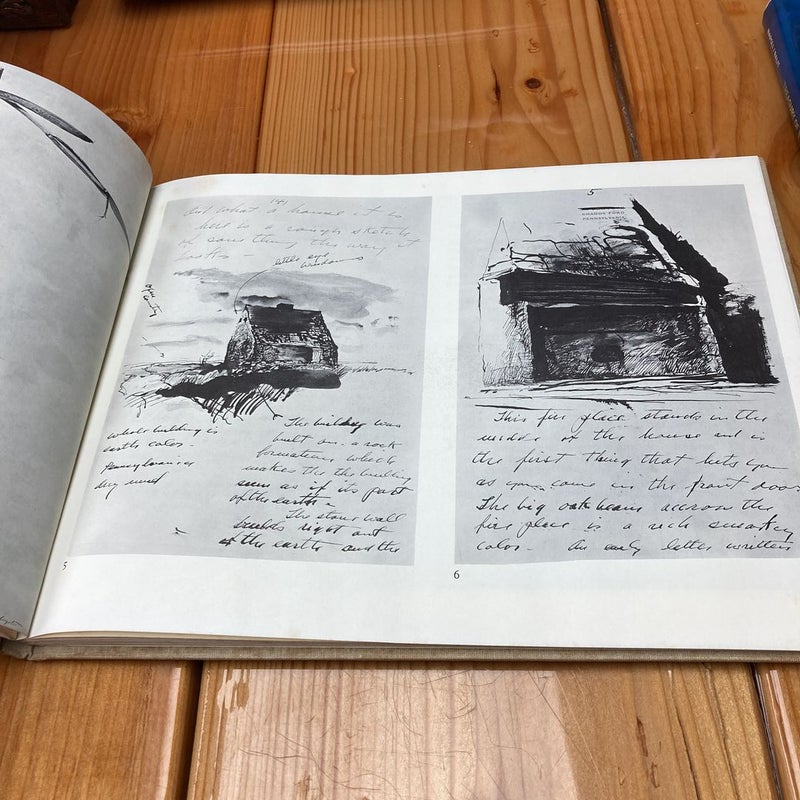 But what a house it is
here is a rough sketch
of some thing the way it
looks -
little eye
windows
whole building is
earth color -
Pennsylvania
mud
The building was
built on a rock
formation which
makes the the building
seem as if its part
of the earth -
The stone wall
builds right out
of the earth and the
5
5
CHADDS FORD
PENNSYLVANIA
This fire place stands in the
middle of the house and is
the first thing that hits you
as you come in the front door
The big oak beam accross the
fire place is a rich smokey
color - An early letter written
6